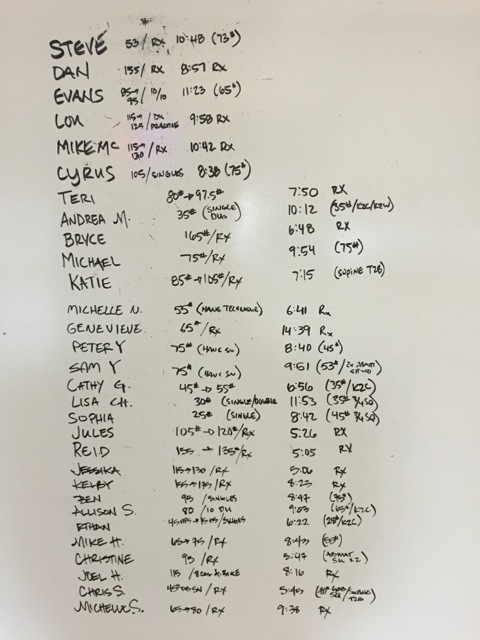 STEVE 53/RX 10:48 (73#)
DAN 155/RX 8:57 RX
EVANS 85→95/10/10 11:23 (65#)
LOU 115→125/DU PRACTICE 9:58 RX
MIKE MC 115→130/RX 10:42 RX
CYRUS 105/SINGLES 8:38 (75#)
TERI 80#→97.5# 7:50 RX
ANDREA M. 35# (SINGLE DUS) 10:12 (35#/K2C/K2W)
BRYCE 165#/RX 6:48 RX
MICHAEL 75#/RX 9:54 (75#)
KATIE 85#→105#/RX 7:15 (SUPINE T2B)
MICHELLE N. 55# (HANG TECHNIQUE) 6:41 RX
GENEVIEVE 65#/RX 14:39 RX
PETER Y 75# (HANG SN) 8:40 (45#)
SAM Y 75# (HANG SN) 9:51 (53#/2x
CATHY G. 45#→55# 6:56 (35#/K2C)
LISA CH. 30# (SINGLE/DOUBLE 11:53 (35# 3/4 SQ)
SOPHIA 25# (SINGLE) 8:42 (45# 3/4 SQ)
JULES 105#→120#/RX 5:26 RX
REID 155→135#/RX 5:05 RX
JESSIKA 115→130/RX 5:06 RX
KELBY 155→175/RX 8:23 RX
BEN 95/SINGLES 8:47 (75#)
ALLISON S. 80/10 DU 9:53 (65#/K2C)
ETHAN 6:22 (25#/K2C)
MIKE H. 65→75/RX 8:43 (55#)
CHRISTINE 95/RX 5:47 (ABMAT S.U. X2)
JOEL H. 115 8:16 RX
CHRIS S. 5:45
MICHELLE S. 65→80/RX 9:38 RX